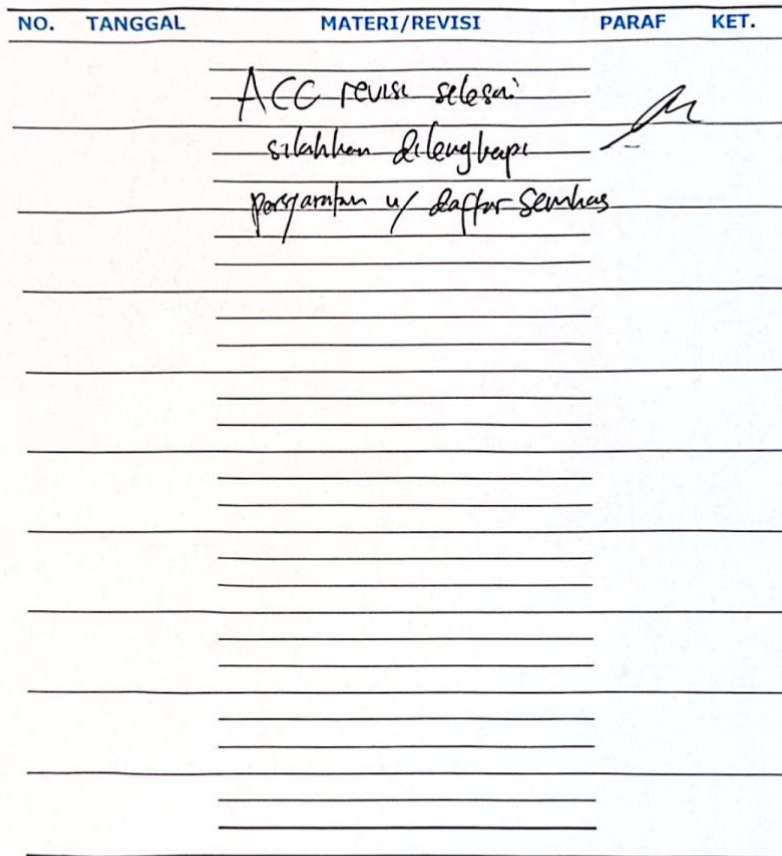 NO. TANGGAL MATERI/REVISI PARAF KET.
ACC revisi selesai
silahkan dilengkapi
persyaratan u/ daftar semhas